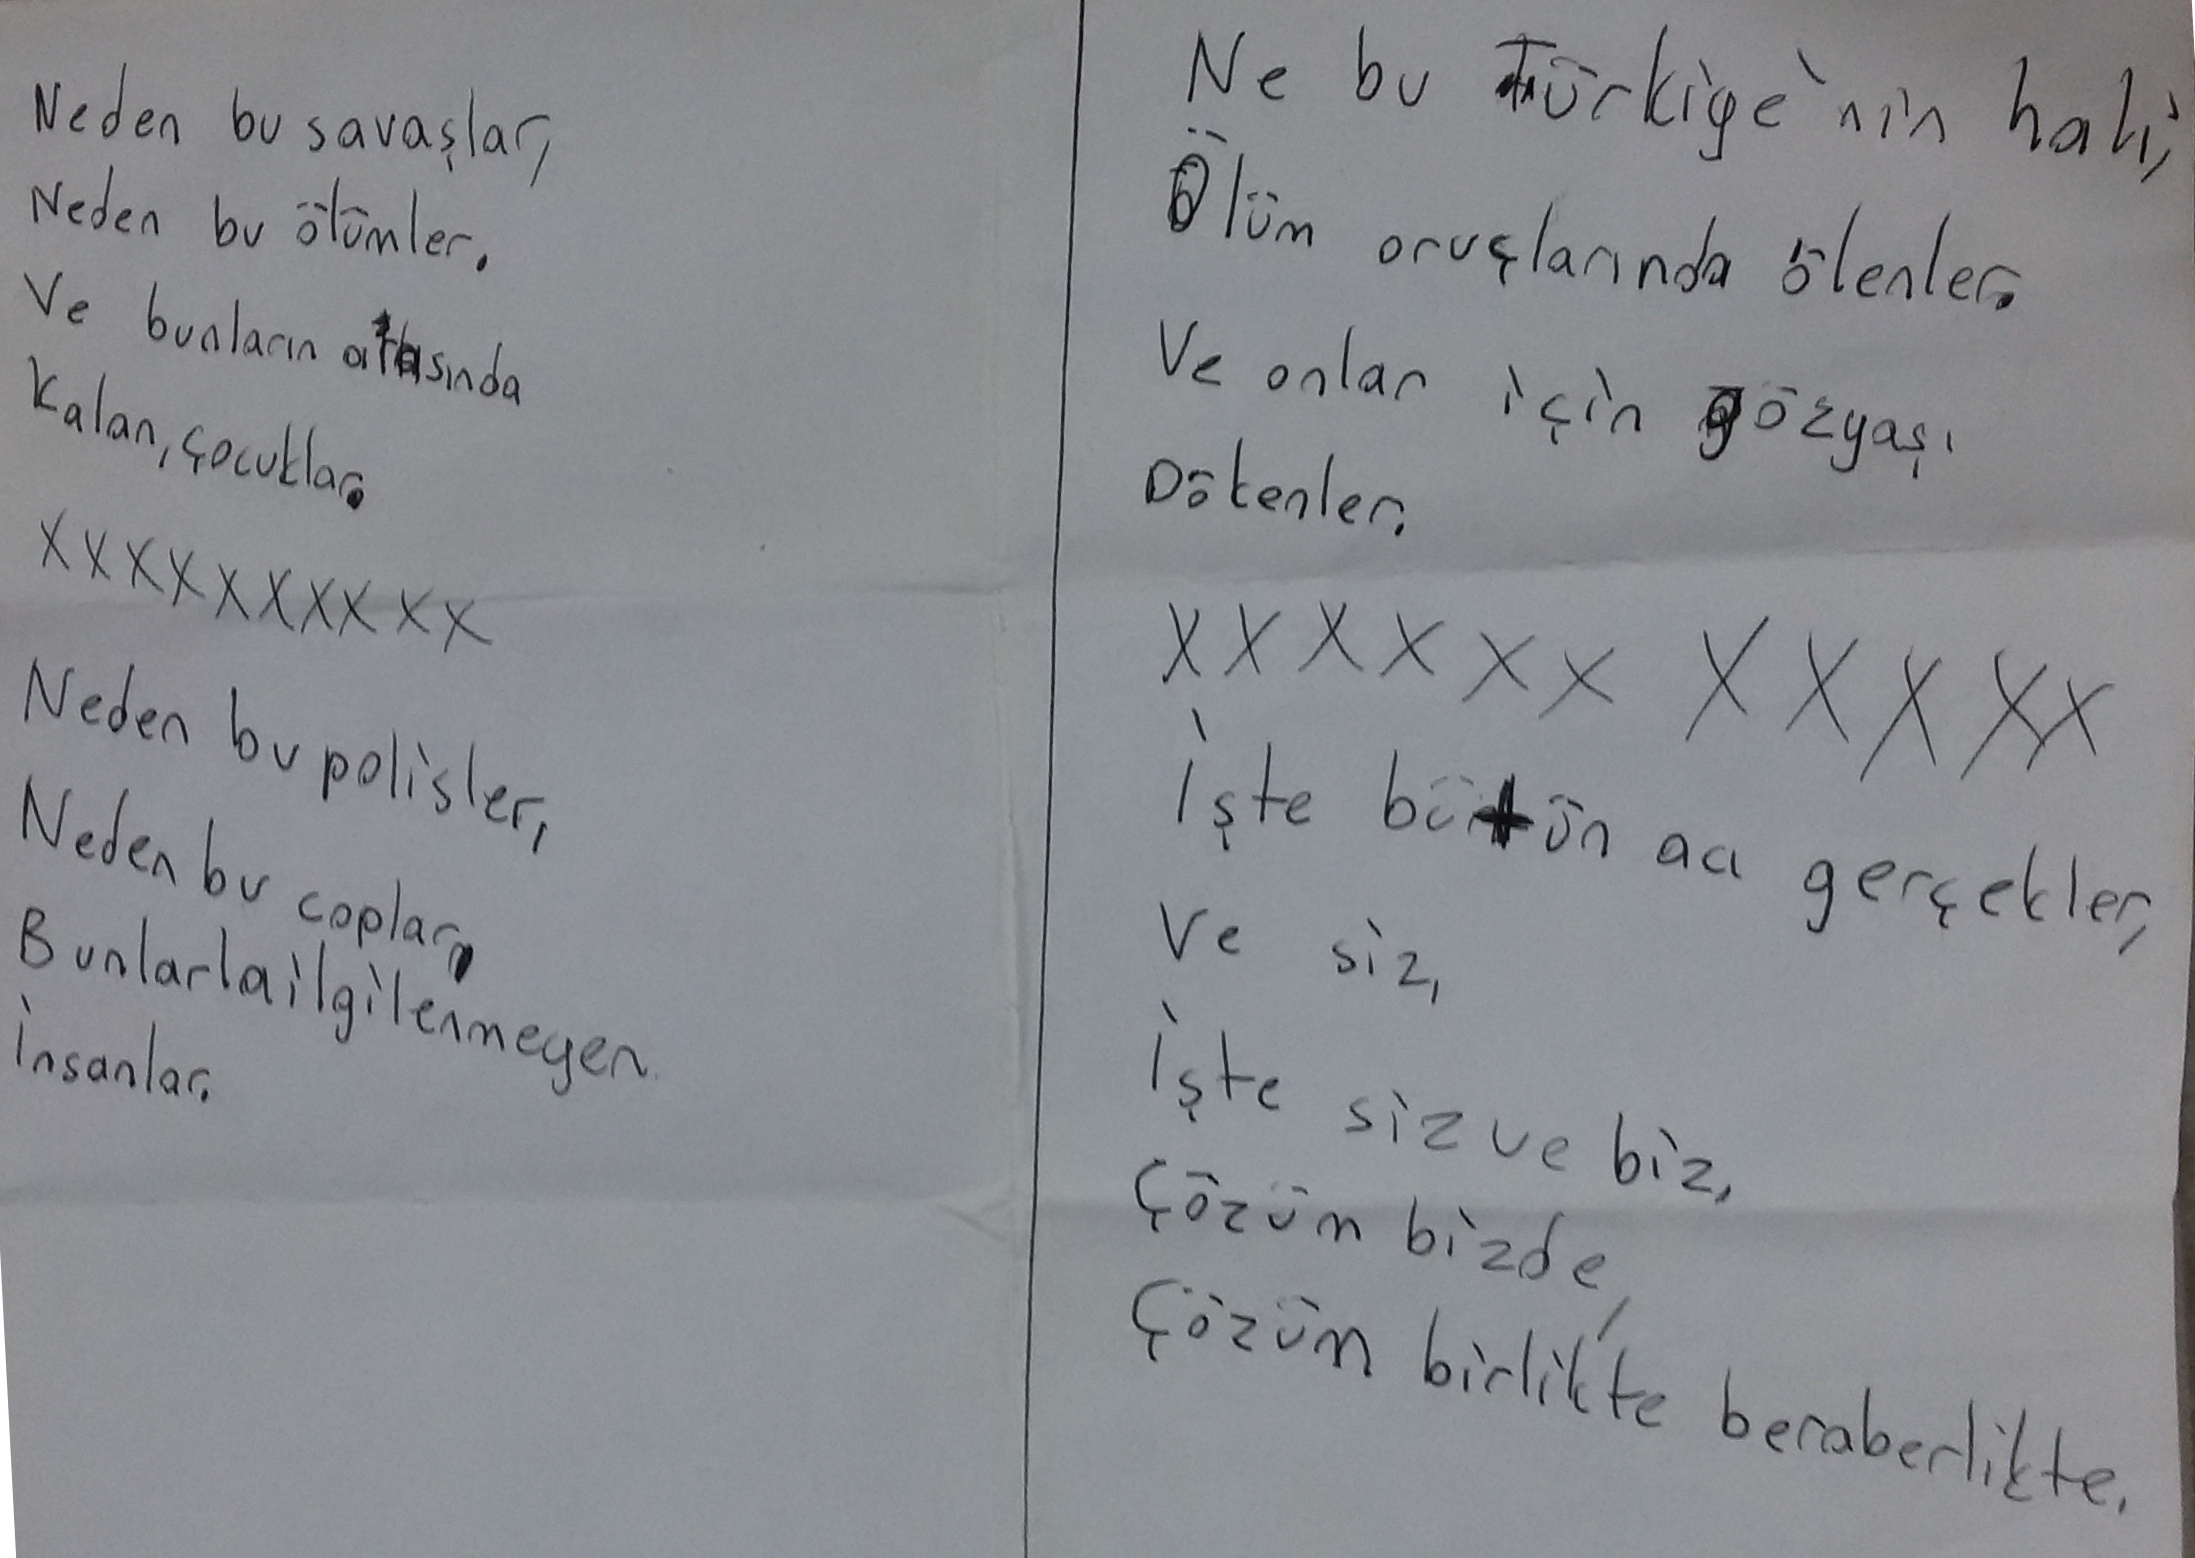 Neden bu savaşlar,
Neden bu ölümler.
Ve bunların
Kalan, çocuklar.
XXXXXXXXXX
Neden bu polisler,
Neden bu coplar,
Bunlarla ilgilenmeyen
İnsanlar.
Ne bu Türkiye'nin hali,
Ölüm oruçlarında ölenler.
Ve onlar için gözyaşı
Dökenler.
XXXXXXXXXXX
İşte bütün acı gerçekler,
Ve siz,
İşte siz ve biz,
Çözüm bizde,
Çözüm birlikte beraberlikte.